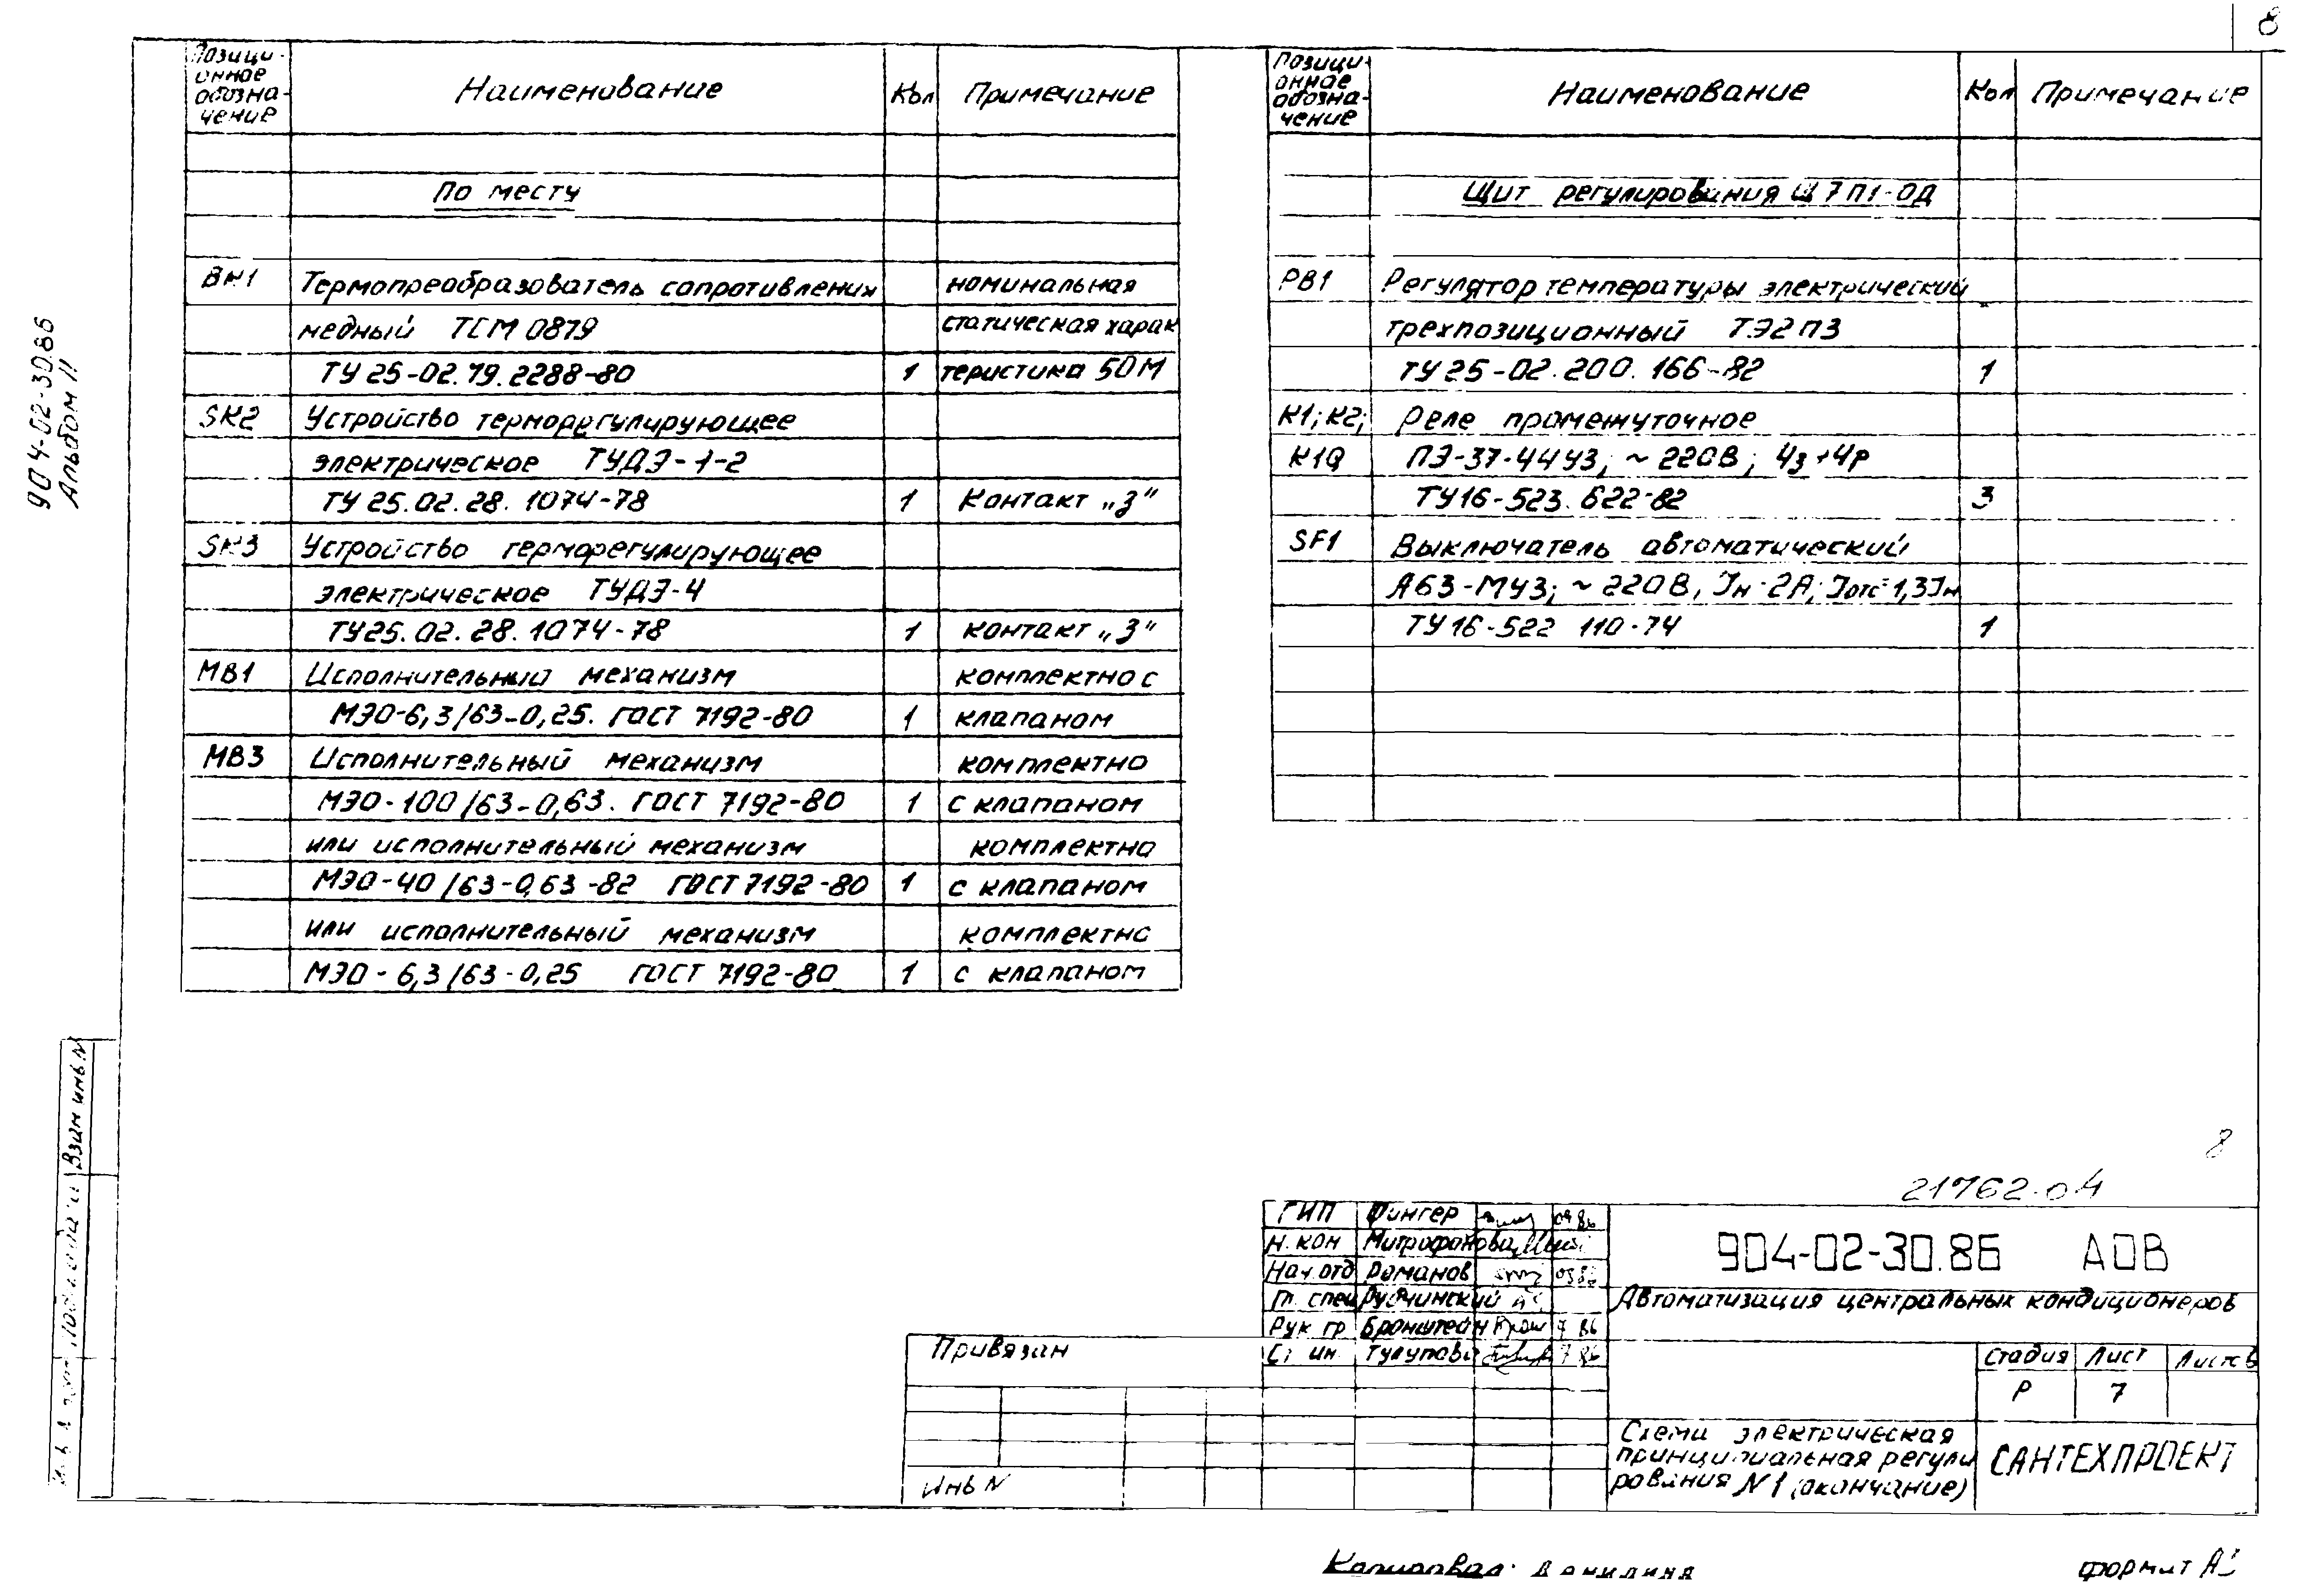 8
904-02-30.86
Альбом II
Позици-
онное
обозна-
чение
Наименование
Кол
Примечание
По месту
ВК1 Термопреобразователь сопротивления номинальная
медный ТСМ 0879 статическая харак
ТУ 25-02.79.2288-80 1 теристика 50М
SK2 Устройство терморегулирующее
электрическое ТУДЭ-1-2
ТУ 25.02.28.1074-78 1 Контакт „З"
SK3 Устройство терморегулирующее
электрическое ТУДЭ-4
ТУ25.02.28.1074-78 1 контакт „З"
МВ1 Исполнительный механизм комплектно с
МЭО-6,3/63-0,25. ГОСТ 7192-80 1 клапаном
МВ3 Исполнительный механизм комплектно
МЭО-100/63-0,63. ГОСТ 7192-80 1 с клапаном
или исполнительный механизм комплектно
МЭО-40/63-0,63-82 ГОСТ 7192-80 1 с клапаном
или исполнительный механизм комплектно
МЭО-6,3/63-0,25 ГОСТ 7192-80 1 с клапаном
Позици-
онное
обозна-
чение
Наименование
Кол
Примечание
Щит регулирования Щ7П1-ОД
РВ1 Регулятор температуры электрический
трехпозиционный ТЭ2П3
ТУ 25-02.200.166-82 1
К1; К2; Реле промежуточное
К1Q ПЭ-37-44У3; ~220В; 4з+4р
ТУ16-523.622-82 3
SF1 Выключатель автоматический
А63-МУ3; ~220В, Iн-2А; Iотс=1,3Iн
ТУ16-522 110-74 1
8
21762-04
ГИП Фингер 09.86
Н. кон Митрофанова
Нач.отд Романов 09.86
Гл. спец Рубчинский
Рук гр Бронштейн 7 86
Ст ин. Тулупова 7 86
904-02-30.86 АОВ
Автоматизация центральных кондиционеров
Стадия Лист Листов
Р 7
Схема электрическая
принципиальная регули
рования N1 (окончание)
САНТЕХПРОЕКТ
Привязан
Инв N
Взам инв N
Копировал: Данилина
формат А3